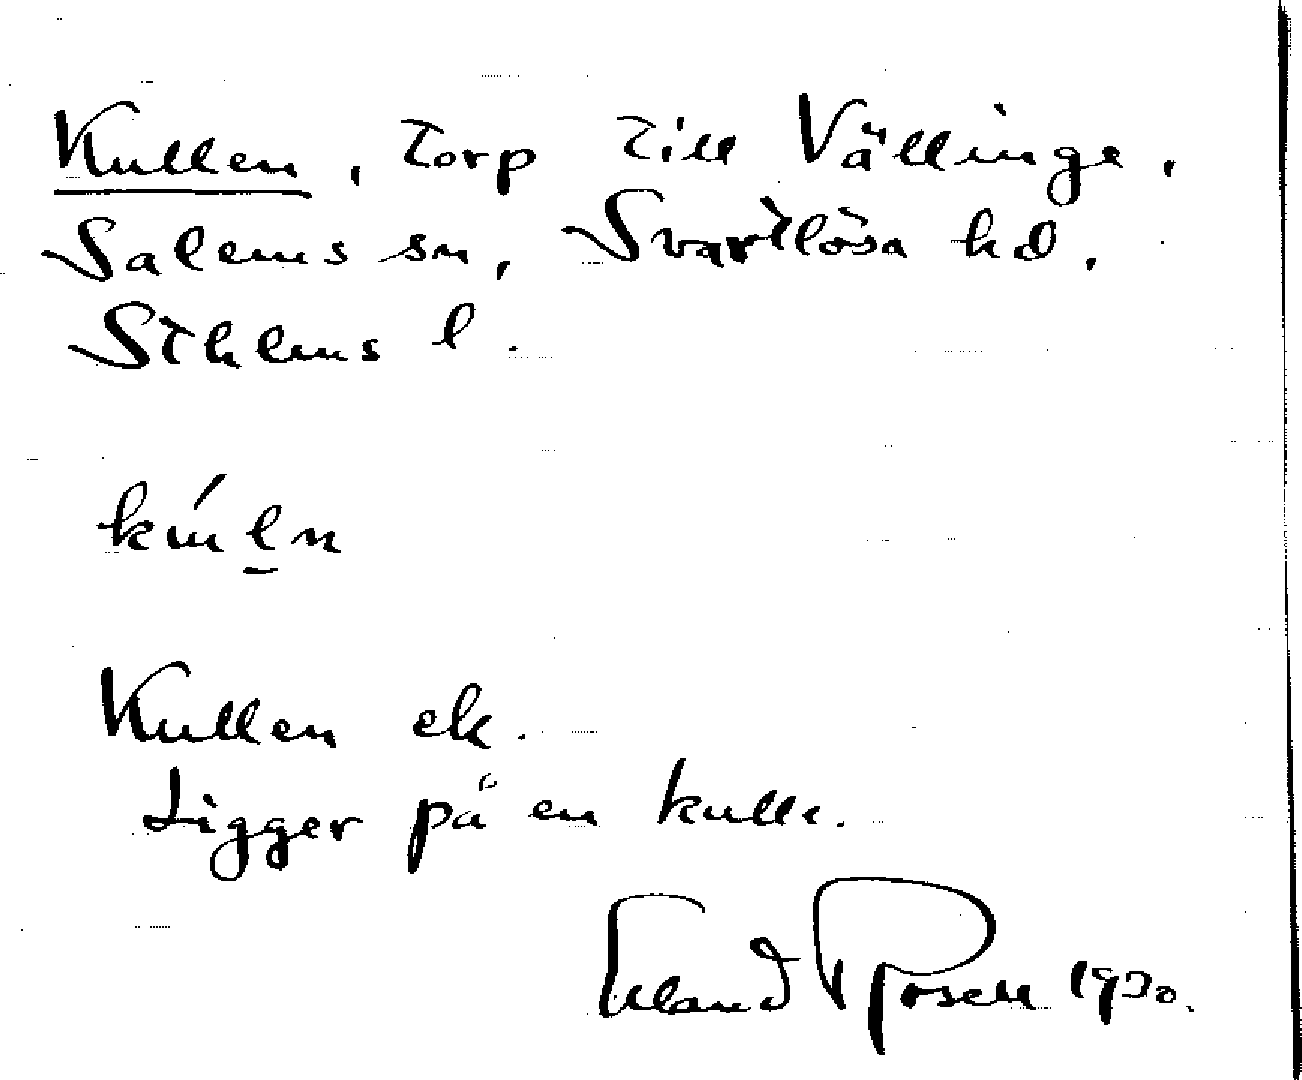 Kullen, torp till Vällinge,
Salems sn, Svartlösa hd,
Sthlms l.
kúln
Kullen ek.
Ligger på en kulle.
Erland Rosell 1930.